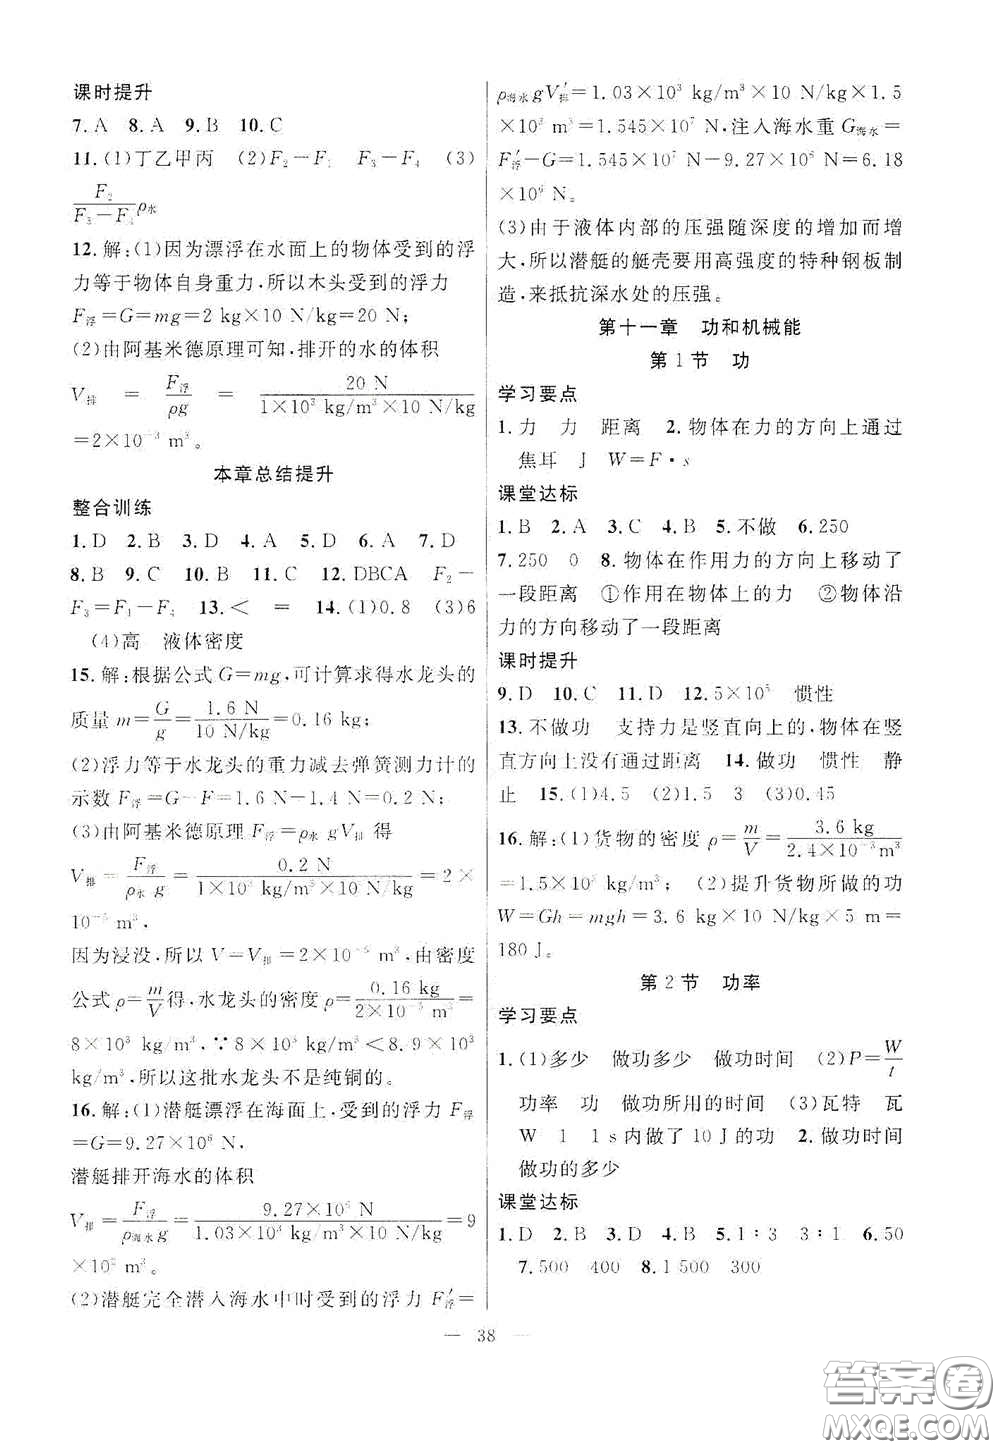 课时提升
7.A 8.A 9.B 10.C
11.(1)丁乙甲丙 (2)F₂-F₁ F₃-F₄ (3)
F₂/(F₃-F₄)ρ水
12.解:(1)因为漂浮在水面上的物体受到的浮
力等于物体自身重力,所以木头受到的浮力
F浮=G=mg=2 kg×10 N/kg=20 N;
(2)由阿基米德原理可知,排开的水的体积
V排 = F浮/ρg = 20 N/(1×10³ kg/m³×10 N/kg)
=2×10⁻³ m³。
本章总结提升
整合训练
1.D 2.B 3.D 4.A 5.D 6.A 7.D
8.B 9.C 10.B 11.C 12.DBCA F₂-
F₃=F₁-F₄ 13.< = 14.(1)0.8 (3)6
(4)高 液体密度
15.解:根据公式G=mg,可计算求得水龙头的
质量m=G/g=1.6 N/(10 N/kg)=0.16 kg;
(2)浮力等于水龙头的重力减去弹簧测力计的
示数F浮=G-F=1.6 N-1.4 N=0.2 N;
(3)由阿基米德原理F浮=ρ水gV排得
V排=F浮/(ρ水g)=0.2 N/(1×10³ kg/m³×10 N/kg)=2×
10⁻⁵ m³,
因为浸没,所以V=V排=2×10⁻⁵ m³,由密度
公式ρ=m/V得,水龙头的密度ρ=0.16 kg/(2×10⁻⁵ m³)=
8×10³ kg/m³,∵8×10³ kg/m³<8.9×10³
kg/m³,所以这批水龙头不是纯铜的。
16.解:(1)潜艇漂浮在海面上,受到的浮力F浮
=G=9.27×10⁶ N
潜艇排开海水的体积
V排=F浮/(ρ海水g)=9.27×10⁶ N/(1.03×10³ kg/m³×10 N/kg)=9
×10² m³。
(2)潜艇完全潜入海水中时受到的浮力F′浮=
ρ海水gV′排=1.03×10³ kg/m³×10 N/kg×1.5
×10³ m³=1.545×10⁷ N,注入海水重G海水=
F′浮-G=1.545×10⁷ N-9.27×10⁶ N=6.18
×10⁶ N。
(3)由于液体内部的压强随深度的增加而增
大,所以潜艇的艇壳要用高强度的特种钢板制
造,来抵抗深水处的压强。
第十一章 功和机械能
第1节 功
学习要点
1.力 力 距离 2.物体在力的方向上通过
焦耳 J W=F·s
课堂达标
1.B 2.A 3.C 4.B 5.不做 6.250
7.250 0 8.物体在作用力的方向上移动了
一段距离 ①作用在物体上的力 ②物体沿
力的方向移动了一段距离
课时提升
9.D 10.C 11.D 12.5×10⁵ 惯性
13.不做功 支持力是竖直向上的,物体在竖
直方向上没有通过距离 14.做功 惯性 静
止 15.(1)4.5 (2)1.5 3 (3)0.45
16.解:(1)货物的密度ρ=m/V=3.6 kg/(2.4×10⁻³m³)
=1.5×10³ kg/m³; (2)提升货物所做的功
W=Gh=mgh=3.6 kg×10 N/kg×5 m=
180 J。
第2节 功率
学习要点
1.(1)多少 做功多少 做功时间 (2)P=W/t
功率 功 做功所用的时间 (3)瓦特 瓦
W 1 1 s内做了10 J的功 2.做功时间
做功的多少
课堂达标
1.D 2.B 3.D 4.B 5.1∶3 3∶1 6.50
7.500 400 8.1 500 300
— 38 —
答案卷
MXQE.COM